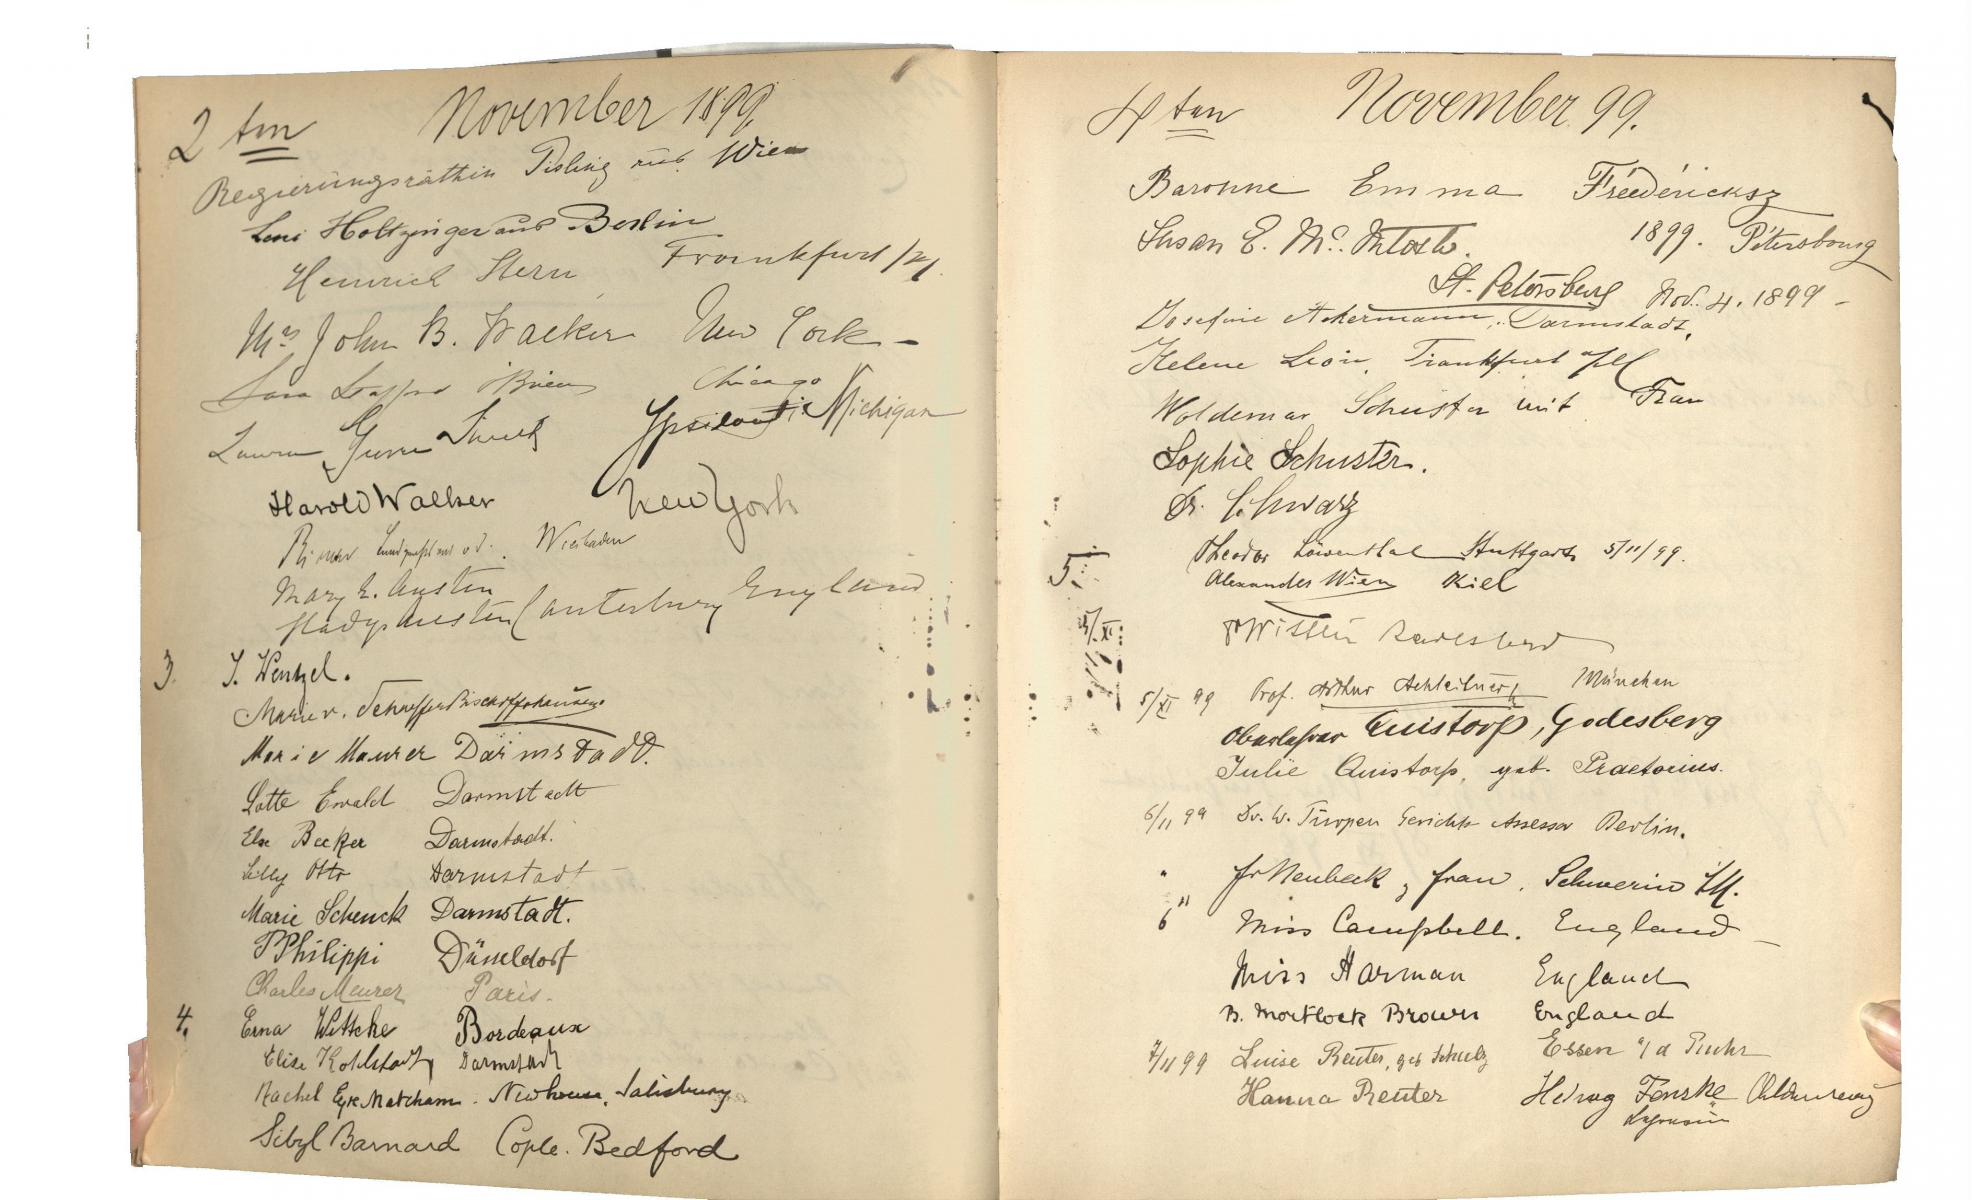 2 ten November 1899.
Regierungsräthin Pisling aus Wien
Leni Holtzinger aus Berlin
Heinrich Stern Frankfurt
Mrs John B. Walker New York -
Sara O'Brien Chicago
Laura Ypsilanti Michigan
Harold Walker New York
Wiesbaden
Mary E. Austen
Gladys Austen Canterbury England
3. J. Wentzel.
Marie v.
Marie Maurer Darmstadt.
Lotte Ewald Darmstadt
Else Becker Darmstadt.
Lilly Otto Darmstadt
Marie Schenck Darmstadt.
P Philippi Düsseldorf
Charles Meurer Paris.
4. Erna Wittcke Bordeaux
Elise Kohlstadt Darmstadt
Rachel Eyre Matcham. Newhouse, Salisbury
Sibyl Barnard Cople. Bedford
4 ten November 99.
Baronne Emma Fréedericksz
Susan E. Mc.Intosh. 1899. Pétersbourg
St. Petersburg Nov. 4. 1899 -
Josefine Ackermann, Darmstadt.
Helene Leon, Frankfurt
Woldemar Schuster mit Frau
Sophie Schuster.
Dr. Schwarz
Theodor Löwenthal Stuttgart 5/11/99.
5. Alexander Wien Kiel
5/XI.
5/XI 99 Prof. Arthur Achleitner, München
Quistorp, Godesberg
Julie Quistorp, geb. Praetorius.
6/11 99 Dr. W. Gerichts Assessor Berlin.
" Neubeck, Frau, Schwerin i/M.
6" Miss Campbell. England -
Miss Harman England
B. Mortlock Brown England
7/11 99 Luise Reuter, geb Schulz Essen a/d Ruhr
Hanna Reuter Hedwig Fenske Oldenburg